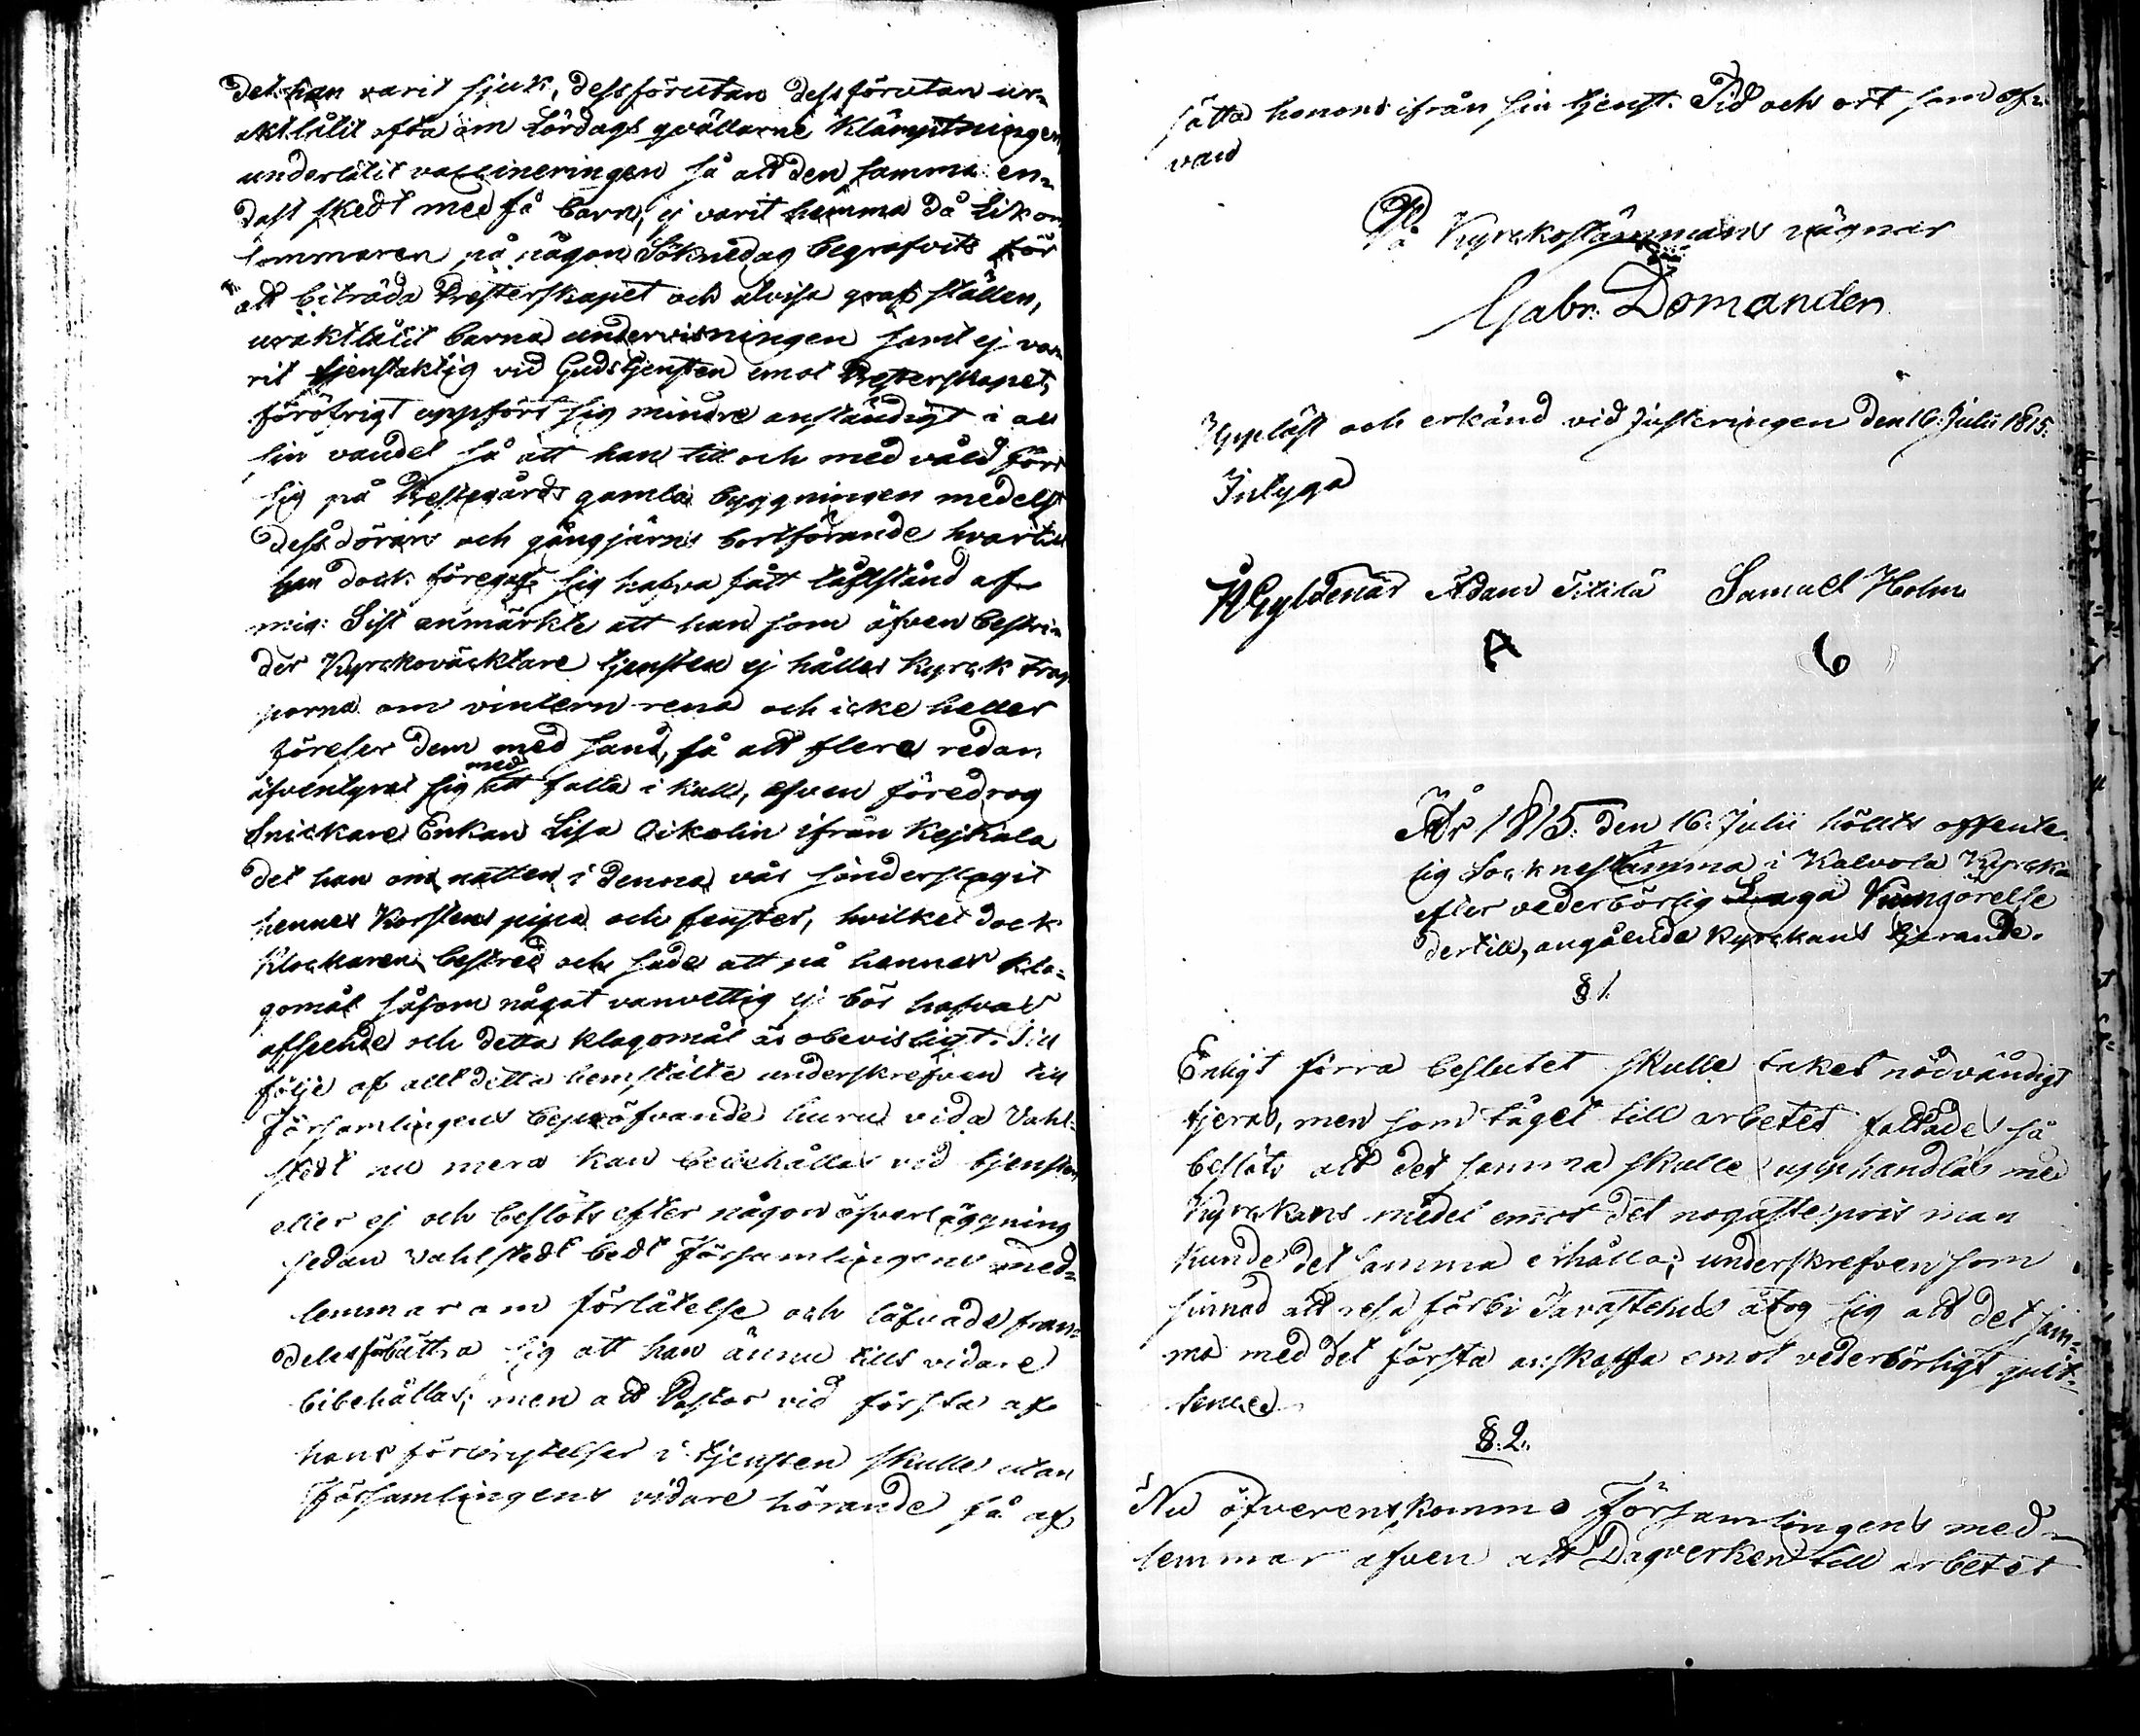 det han varit sjuk, dessförutan dessförutan ur=
aktlåtit ofta om Lördags qvällarne klämptningen,
underlåtit vaccineringen så att den samma en=
dast skedt med få barn, ej varit hemma då Lik om
sommaren på någon Söknedag begrafvits för
att biträda Presterskapet och utvisa graf ställen,
uraktlåtit barna undervisningen samt ej va=
rit tjenstaktig vid Gudstjensten emot Presterskapet,
föröfrigt uppfört sig mindre anständigt i all
sin vandel så att han till och med våld fört
sig på Prestegårds gamla byggningen medelst
dess dörars och gångjärns bortförande hvartill
han dock föregaf sig hafva fått tillstånd af
mig: Sist anmärkte att han som äfven bestri=
der Kyrckoväcktare tjensten ej håller kyrck trap
porna om vintern rena och icke heller
förser dem med sand, så att flere redan
äfventyrat sig med att falla i kull, äfven föredrog
Snickare Enkan Lisa Oikolin ifrån Keikala
det han om natten i denna vår sönderslagit
hennes Korstens pipa och fenster, hvilket dock
Klockaren bestred och sade att på hennes kla=
gomål såsom något vanvettig ej bör hafvas
afseende och detta klagomål är obevisligt. Till
följe af allt detta hemstälte underskrefven till
Församlingens bepröfvande huru vida Vahl=
stedt nu mera kan bibehållas vid tjensten
eller ej och beslöts efter någon öfverläggning
sedan Vahlstedt bedt Församlingens med=
lemmar om förlåtelse och låfvade fram=
deles förbättra sig att han ännu tills vidare
bibehålles; men att Pastor vid första af
hans förbrytelser i tjensten skulle utan
Församlingens vidare hörande få af
sätta honom ifrån sin tjenst. Tid och ort som of=
van
På Kyrckostämmans vägnar
Gabr. Domander
Uppläst och erkänd vid Justeringen den 16. Julii 1815.
Intyga
Gyldenär Adam Titilä Samuel Holm
A 6
År 1815. den 16. Julii hölts offente=
lig Socknestämma i Kalvola Kyrcka
efter vederbörlig Laga Kungörelse
dertill, angående Kyrckans tjärande.
§ 1.
Enligt förra beslutet skulle taket nödvändigt
tjeras, men som tåget till arbetet fattades så
beslöts att det samma skulle upphandlas med
Kyrckans medel emot det nogaste pris man
kunde det samma erhålla; underskrefven som
sinnad att resa förbi Tavastehus åtog sig att det sam=
ma med det första anskaffa emot vederbörligt quit=
tence
§. 2.
Nu öfverenskommo Församlingens med=
lemmar äfven att Dagverken till arbetet